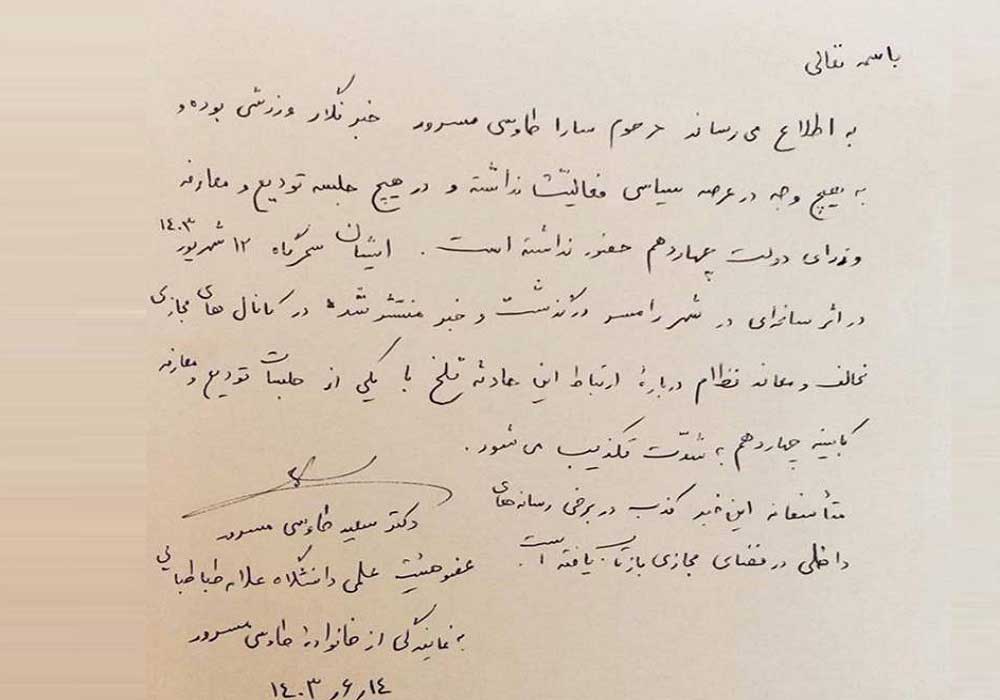 باسمه تعالی
به اطلاع می رساند مرحوم سارا طاوسی مسرور خبرنگار ورزشی بوده و
به هیچ وجه در عرصه سیاسی فعالیت نداشته و در هیچ جلسه تودیع و معارفه
وزرای دولت چهاردهم حضور نداشته است. ایشان سحرگاه ۱۲ شهریور ۱۴۰۳
در اثر سانحه‌ای در شهر رامسر درگذشت و خبر منتشر شده در کانال های مجازی
مخالف و معاند نظام دربارهٔ ارتباط این حادثه تلخ با یکی از جلسات تودیع و معارفه
کابینه چهاردهم به شدّت تکذیب می شود.
متأسفانه این خبر کذب در برخی رسانه‌های
داخلی در فضای مجازی بازتاب یافته است.
دکتر سعید طاوسی مسرور
عضو هیئت علمی دانشگاه علامه طباطبائی
به نمایندگی از خانوادهٔ طاوسی مسرور
۱۴۰۳/۶/۱۴